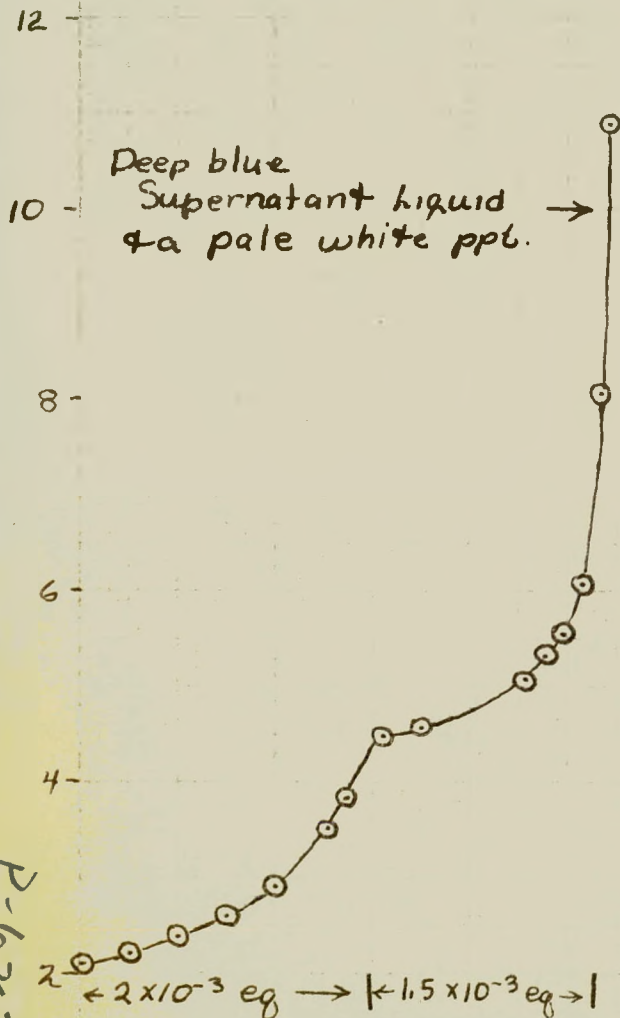 12
Deep blue
Supernatant Liquid
& a pale white ppt.
10
8
6
4
2
← 2 x 10⁻³ eq → |← 1.5 x 10⁻³ eq → |